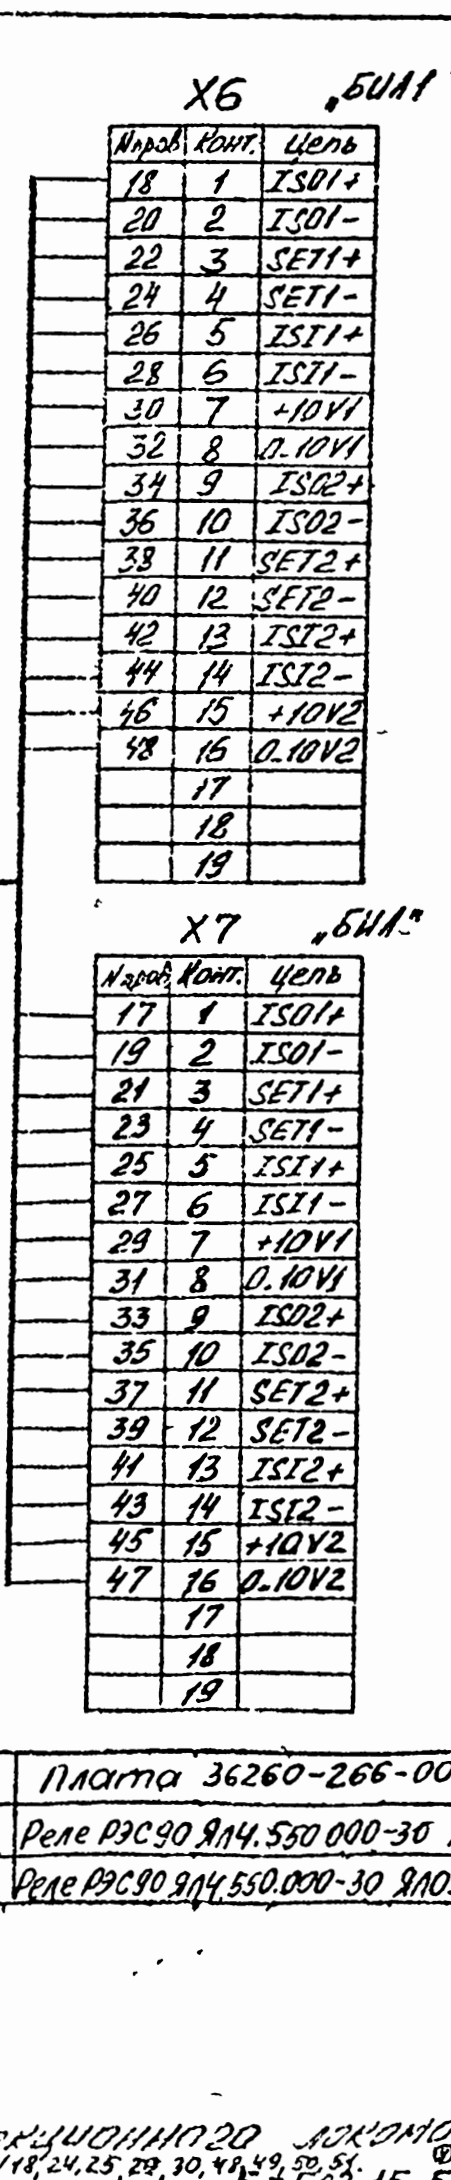 X6 „БИЛ1"
№пров Конт. Цепь
18 1 ISO1+
20 2 ISO1-
22 3 SET1+
24 4 SET1-
26 5 ISI1+
28 6 ISI1-
30 7 +10V1
32 8 0-10V1
34 9 ISO2+
36 10 ISO2-
38 11 SET2+
40 12 SET2-
42 13 ISI2+
44 14 ISI2-
46 15 +10V2
48 16 0-10V2
17
18
19
X7 „БИЛ"
№пров. Конт. Цепь
17 1 ISO1+
19 2 ISO1-
21 3 SET1+
23 4 SET1-
25 5 ISI1+
27 6 ISI1-
29 7 +10V1
31 8 0.10V1
33 9 ISO2+
35 10 ISO2-
37 11 SET2+
39 12 SET2-
41 13 ISI2+
43 14 ISI2-
45 15 +10V2
47 16 0-10V2
17
18
19
Плата 36260-266-00
Реле РЭС90 ЯЛ4.550 000-30
Реле РЭС90 ЯЛ4.550.000-30 ЯЛ0.
18, 24, 25, 29, 30, 48, 49, 50, 51.